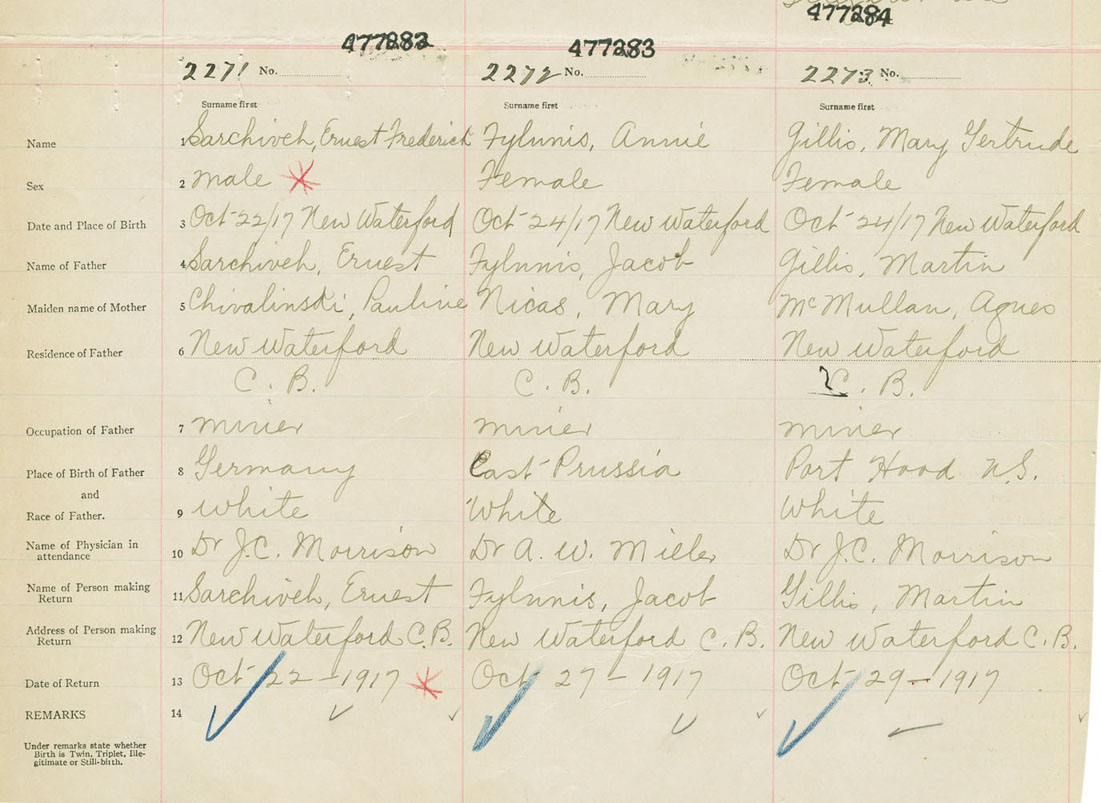 477284
477282 477283
2271 No. 2272 No. 2273 No.
Surname first Surname first Surname first
Name 1 Sarchiveh, Ernest Frederick Fylunnis, Annie Gillis, Mary Gertrude
Sex 2 male Female Female
Date and Place of Birth 3 Oct 22/17 New Waterford Oct 24/17 New Waterford Oct 24/17 New Waterford
Name of Father 4 Sarchiveh, Ernest Fylunnis, Jacob Gillis, Martin
Maiden name of Mother 5 Chivalinski, Pauline Nicas, Mary McMullan, Agnes
Residence of Father 6 New Waterford New Waterford New Waterford
C. B. C. B. C. B.
Occupation of Father 7 miner miner miner
Place of Birth of Father 8 Germany East Prussia Port Hood N.S.
and
Race of Father. 9 White White White
Name of Physician in
attendance 10 Dr J.C. Morrison Dr A. W. Miller Dr J.C. Morrison
Name of Person making
Return 11 Sarchiveh, Ernest Fylunnis, Jacob Gillis, Martin
Address of Person making
Return 12 New Waterford C.B. New Waterford C.B. New Waterford C.B.
Date of Return 13 Oct 22 - 1917 Oct 27 - 1917 Oct 29 - 1917
REMARKS 14
Under remarks state whether
Birth is Twin, Triplet, Ille-
gitimate or Still-birth.